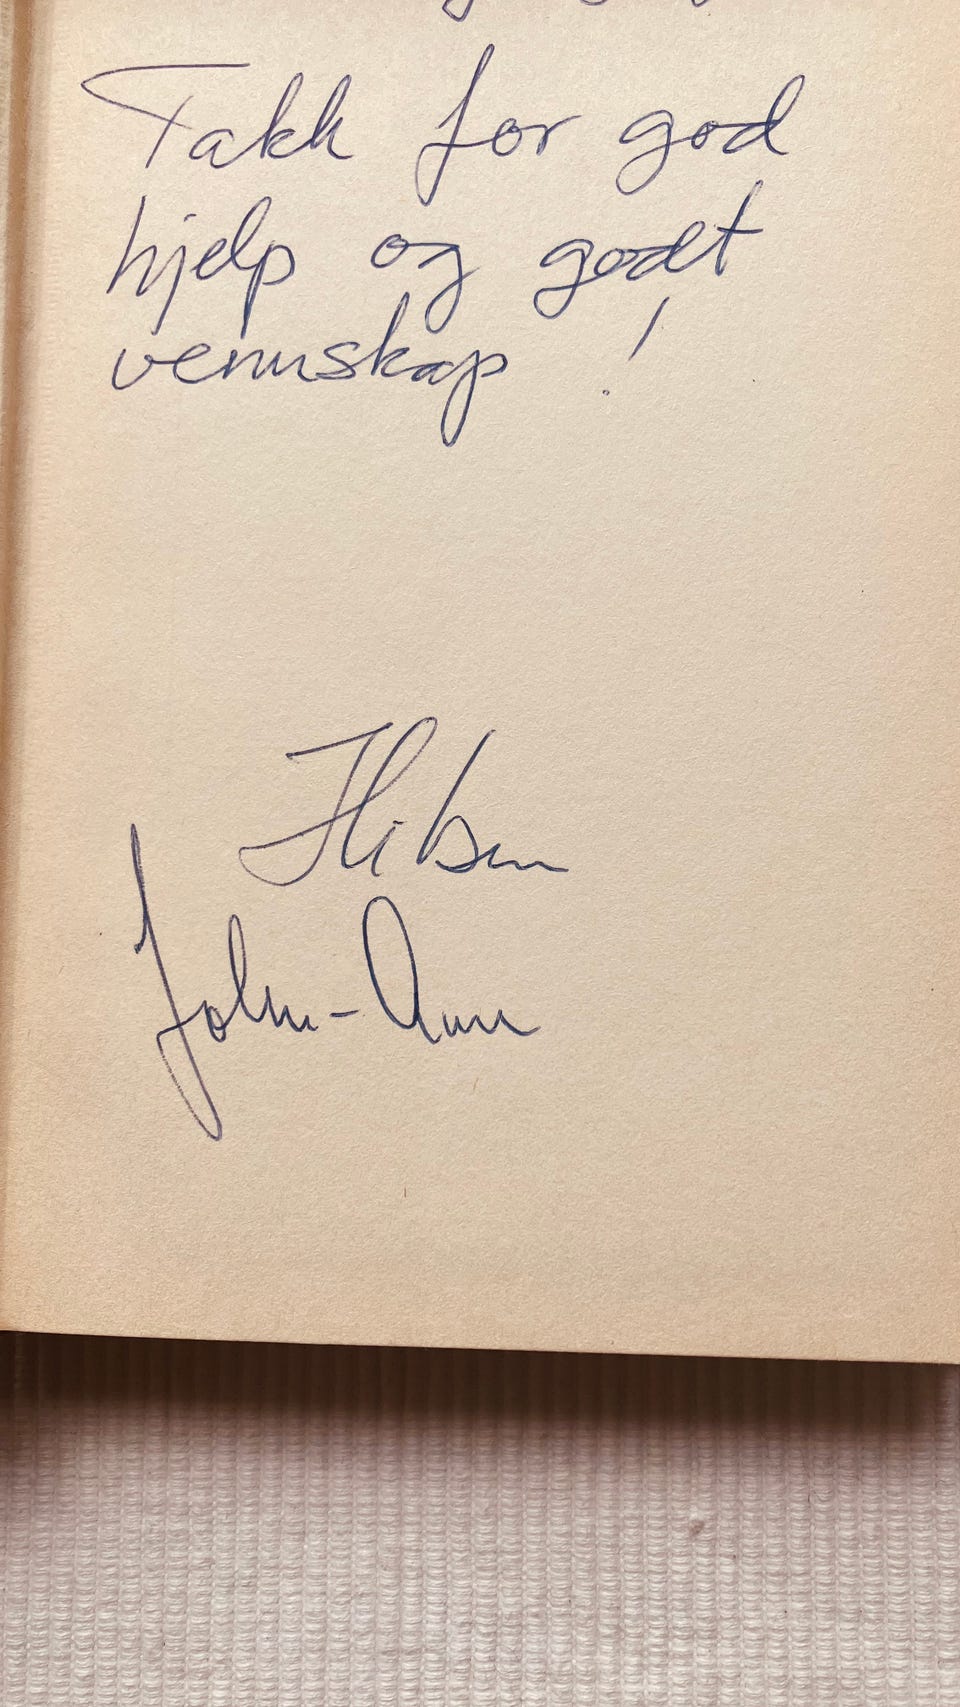 Takk for god
hjelp og godt
vennskap !
Hilsen
John-Arne